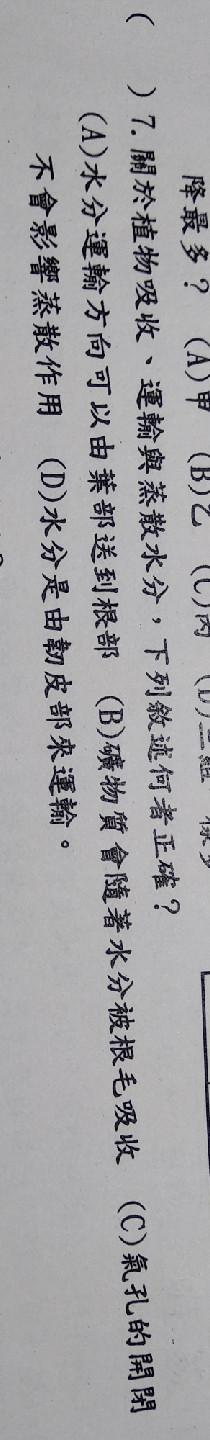 降最多？ (A)甲 (B)乙 (C)丙 (D)三組
( ) 7. 關於植物吸收、運輸與蒸散水分，下列敘述何者正確？
(A)水分運輸方向可以由葉部送到根部 (B)礦物質會隨著水分被根毛吸收 (C)氣孔的開閉
不會影響蒸散作用 (D)水分是由韌皮部來運輸。